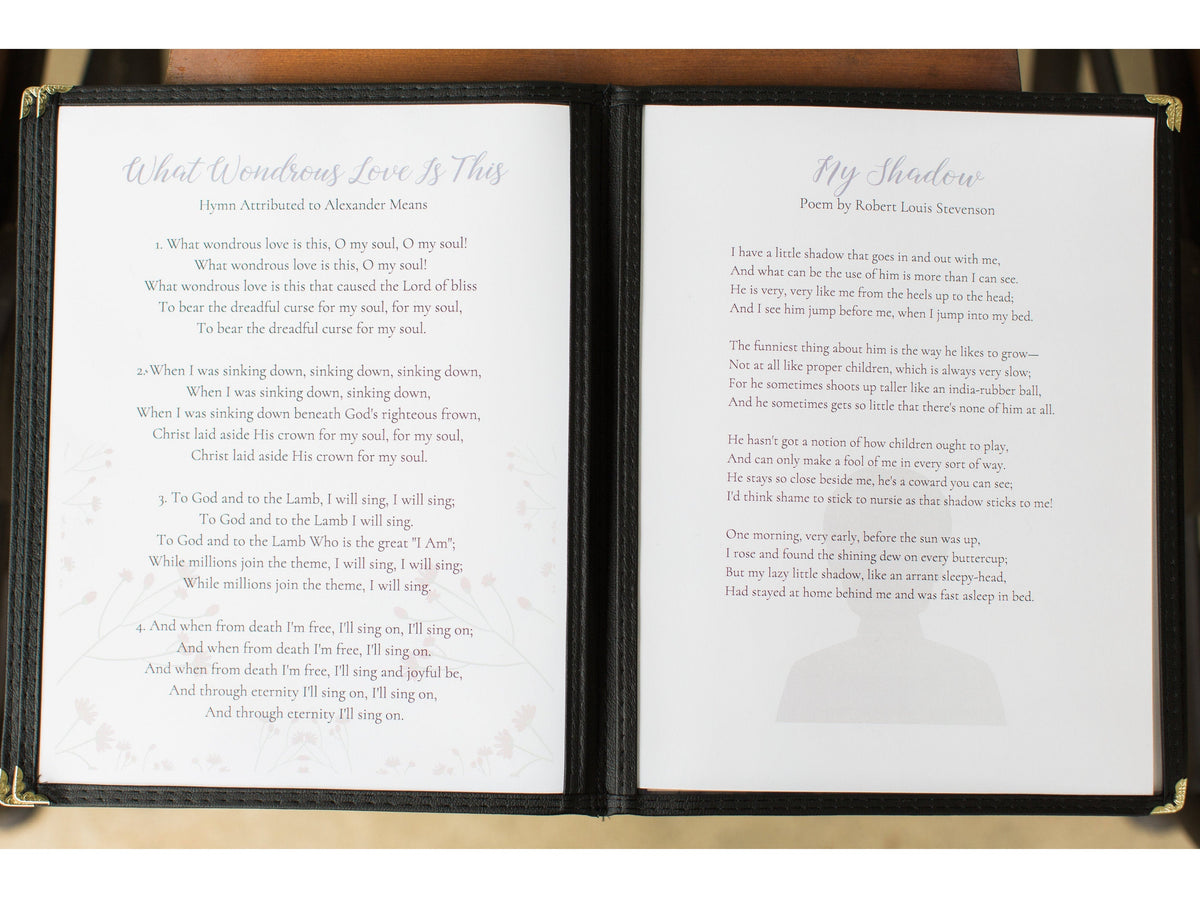 What Wondrous Love Is This
Hymn Attributed to Alexander Means
1. What wondrous love is this, O my soul, O my soul!
What wondrous love is this, O my soul!
What wondrous love is this that caused the Lord of bliss
To bear the dreadful curse for my soul, for my soul,
To bear the dreadful curse for my soul.
2. When I was sinking down, sinking down, sinking down,
When I was sinking down, sinking down,
When I was sinking down beneath God's righteous frown,
Christ laid aside His crown for my soul, for my soul,
Christ laid aside His crown for my soul.
3. To God and to the Lamb, I will sing, I will sing;
To God and to the Lamb I will sing.
To God and to the Lamb Who is the great "I Am";
While millions join the theme, I will sing, I will sing;
While millions join the theme, I will sing.
4. And when from death I'm free, I'll sing on, I'll sing on;
And when from death I'm free, I'll sing on.
And when from death I'm free, I'll sing and joyful be,
And through eternity I'll sing on, I'll sing on,
And through eternity I'll sing on.
My Shadow
Poem by Robert Louis Stevenson
I have a little shadow that goes in and out with me,
And what can be the use of him is more than I can see.
He is very, very like me from the heels up to the head;
And I see him jump before me, when I jump into my bed.
The funniest thing about him is the way he likes to grow—
Not at all like proper children, which is always very slow;
For he sometimes shoots up taller like an india-rubber ball,
And he sometimes gets so little that there's none of him at all.
He hasn't got a notion of how children ought to play,
And can only make a fool of me in every sort of way.
He stays so close beside me, he's a coward you can see;
I'd think shame to stick to nursie as that shadow sticks to me!
One morning, very early, before the sun was up,
I rose and found the shining dew on every buttercup;
But my lazy little shadow, like an arrant sleepy-head,
Had stayed at home behind me and was fast asleep in bed.